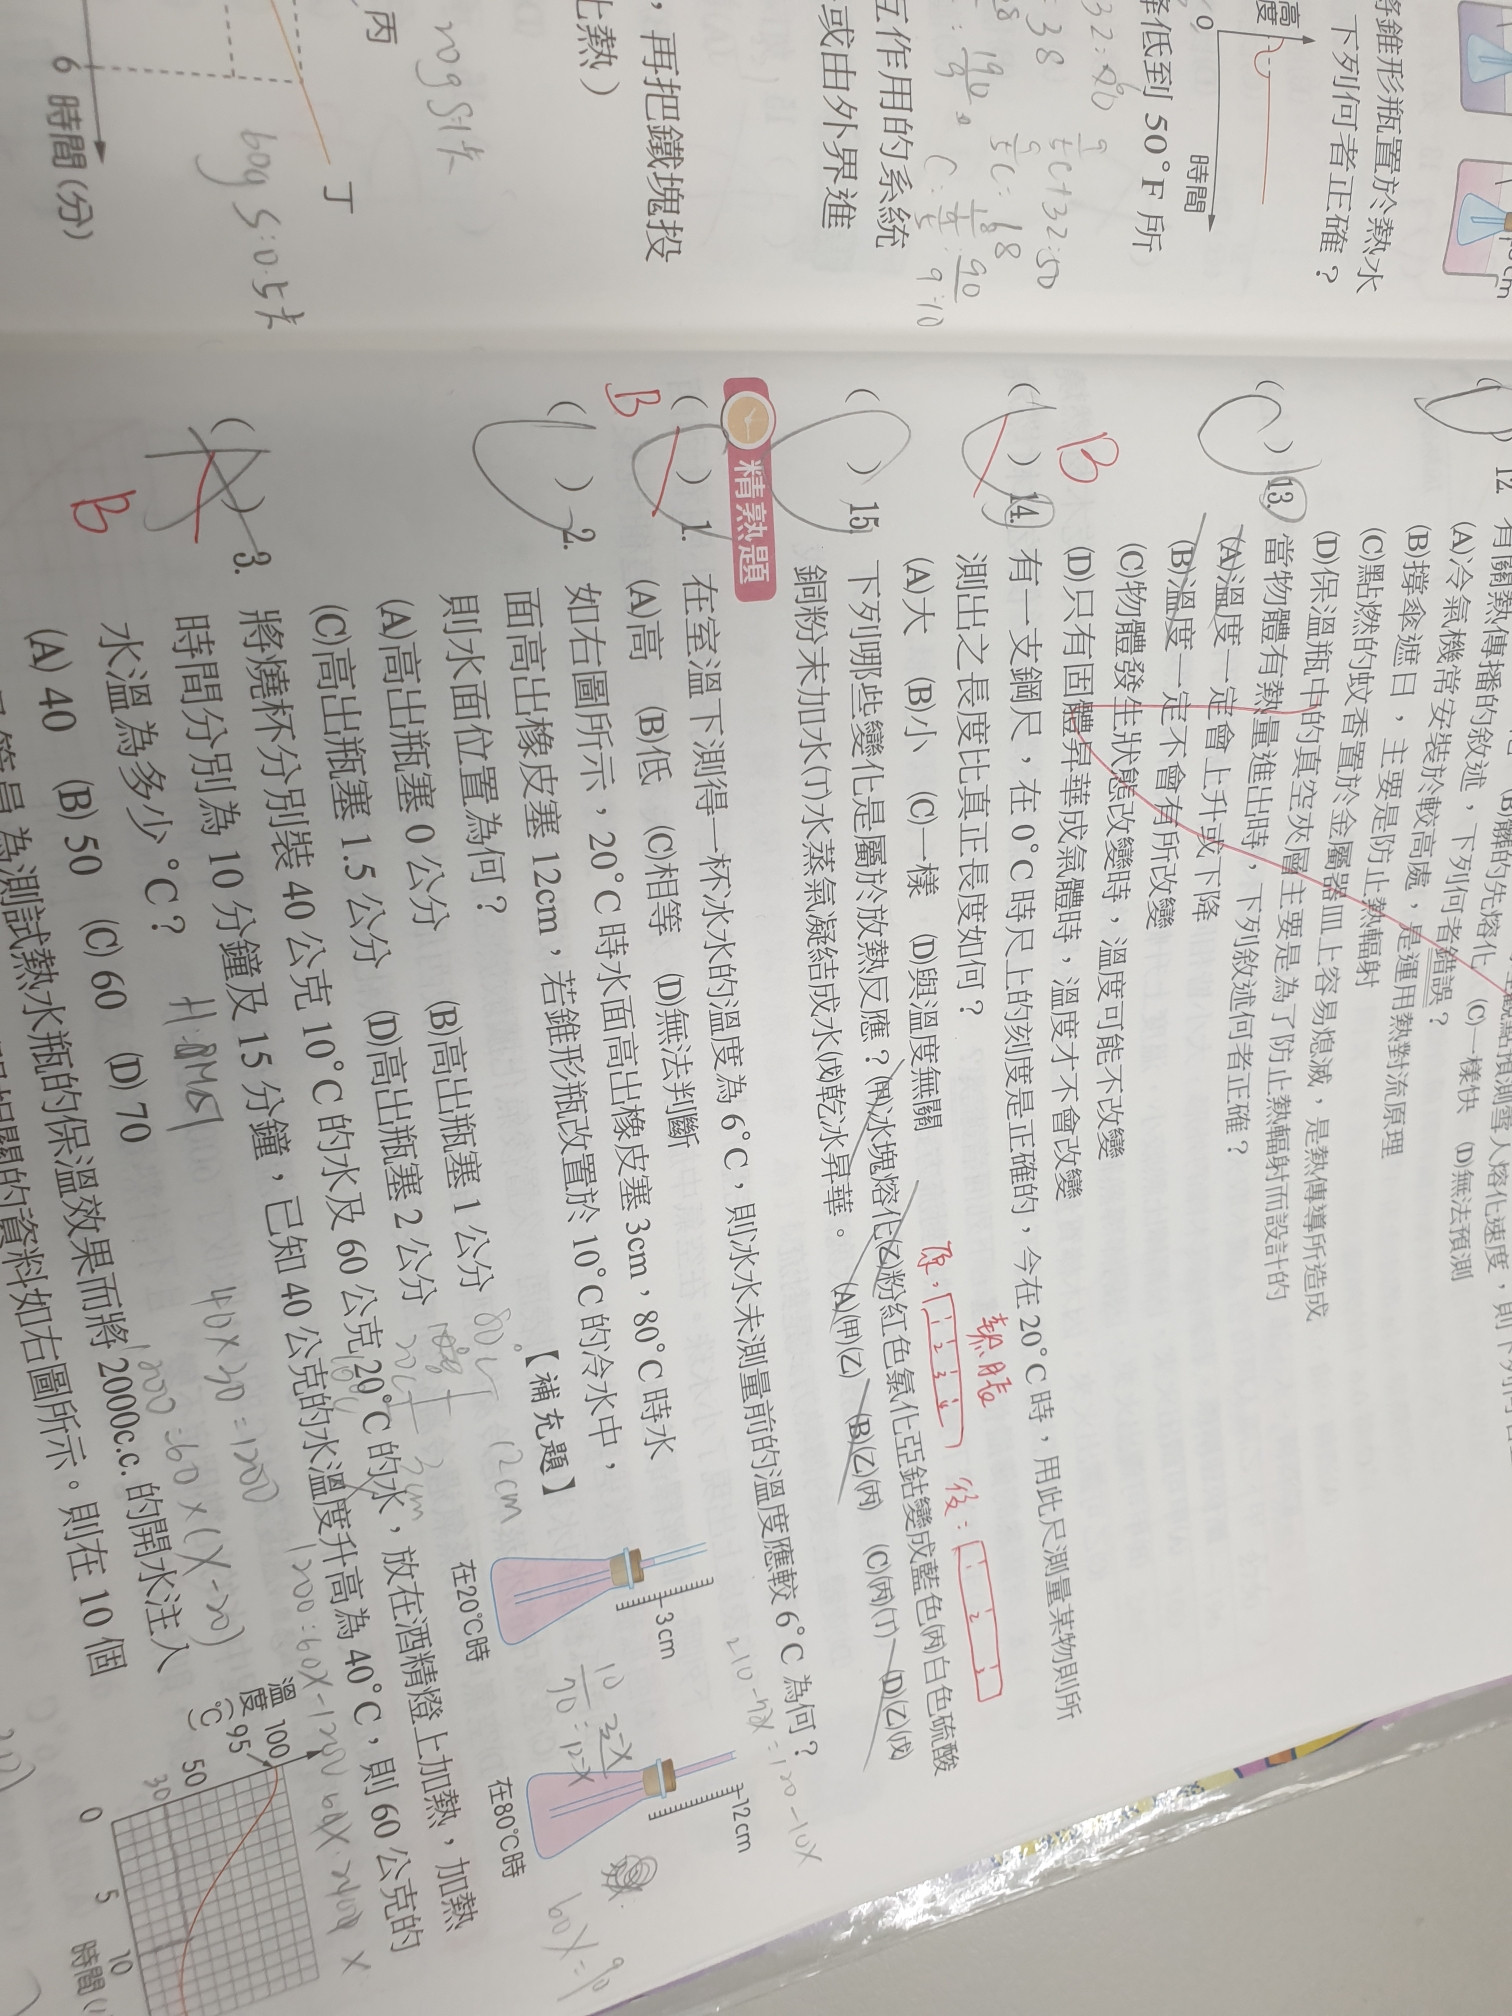 將錐形瓶置於熱水
下列何者正確？
高度
0
時間
降低到 50°F 所
互作用的系統
或由外界進
，再把鐵塊投
比熱）
丙
丁
6
時間(分)
32
38
190
9
9/5C+32=50
9/5C=
18
C=
90
9=10
20g S=1卡
60g S=0.5卡
12. 有關熱傳播的敘述，下列何者錯誤？
(A)冷氣機常安裝於較高處，是運用熱對流原理
(B)撐傘遮日，主要是防止熱輻射
(C)點燃的蚊香置於金屬器皿上容易熄滅，是熱傳導所造成
(D)保溫瓶中的真空夾層主要是為了防止熱輻射而設計的
(C)一樣快 (D)無法預測
( ) 13. 當物體有熱量進出時，下列敘述何者正確？
(A)溫度一定會上升或下降
(B)溫度一定不會有所改變
(C)物體發生狀態改變時，溫度可能不改變
(D)只有固體昇華成氣體時，溫度才不會改變
B
( ) 14. 有一支鋼尺，在 0°C 時尺上的刻度是正確的，今在 20°C 時，用此尺測量某物則所
測出之長度比真正長度如何？
(A)大 (B)小 (C)一樣 (D)與溫度無關
熱脹
原：
1 2 3 4
後：
1 2 3
( ) 15. 下列哪些變化是屬於放熱反應？(甲)冰塊熔化(乙)粉紅色氯化亞鈷變成藍色(丙)白色硫酸
銅粉末加水(丁)水蒸氣凝結成水(戊)乾冰昇華。 (A)(甲)(乙) (B)(乙)(丙) (C)(丙)(丁) (D)(乙)(戊)
精熟題
B
( ) 1. 在室溫下測得一杯冰水的溫度為 6°C，則冰水未測量前的溫度應較 6°C 為何？
(A)高 (B)低 (C)相等 (D)無法判斷
210-70X=120-10X
( ) 2. 如右圖所示，20°C 時水面高出橡皮塞 3cm，80°C 時水
面高出橡皮塞 12cm，若錐形瓶改置於 10°C 的冷水中，
則水面位置為何？ 【補充題】
(A)高出瓶塞 0 公分 (B)高出瓶塞 1 公分
(C)高出瓶塞 1.5 公分 (D)高出瓶塞 2 公分
80
12cm
3cm
3cm
在20°C時
12cm
在80°C時
10/70=3-X/12-X
60X=90
( ) 3. 將燒杯分別裝 40 公克 10°C 的水及 60 公克 20°C 的水，放在酒精燈上加熱，加熱
時間分別為 10 分鐘及 15 分鐘，已知 40 公克的水溫度升高為 40°C，則 60 公克的
水溫為多少 °C？
(A) 40 (B) 50 (C) 60 (D) 70
B
H=
40×30=1200
1200=60×(X-20)
1200=60X-1200
60X=2400
為測試熱水瓶的保溫效果而將 2000c.c. 的開水注入
相關的資料如右圖所示。則在 10 個
溫度(°C)
100
95
50
30
0
5
10
時間